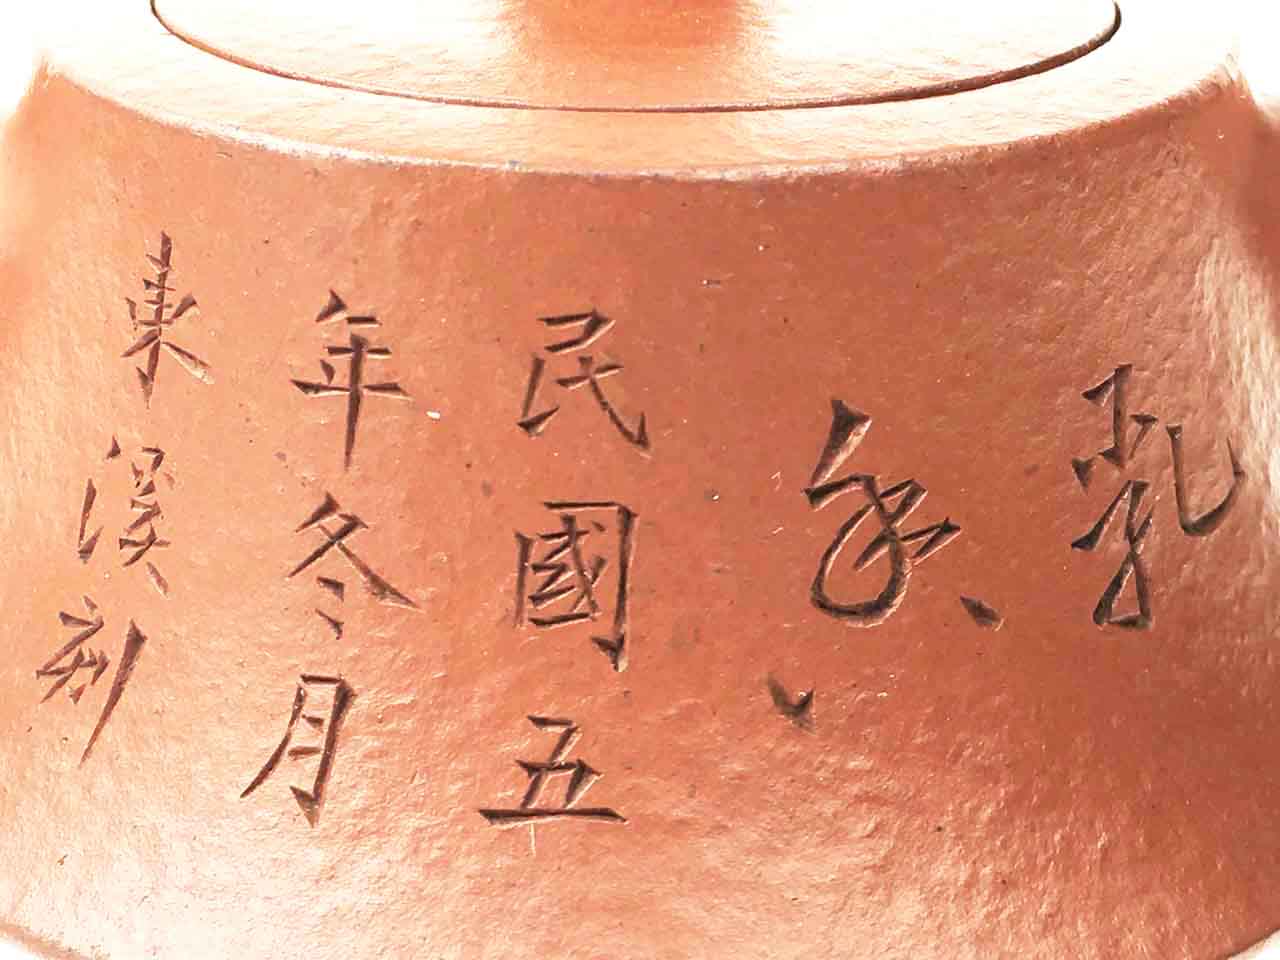 民國五
年冬月
東溪刻